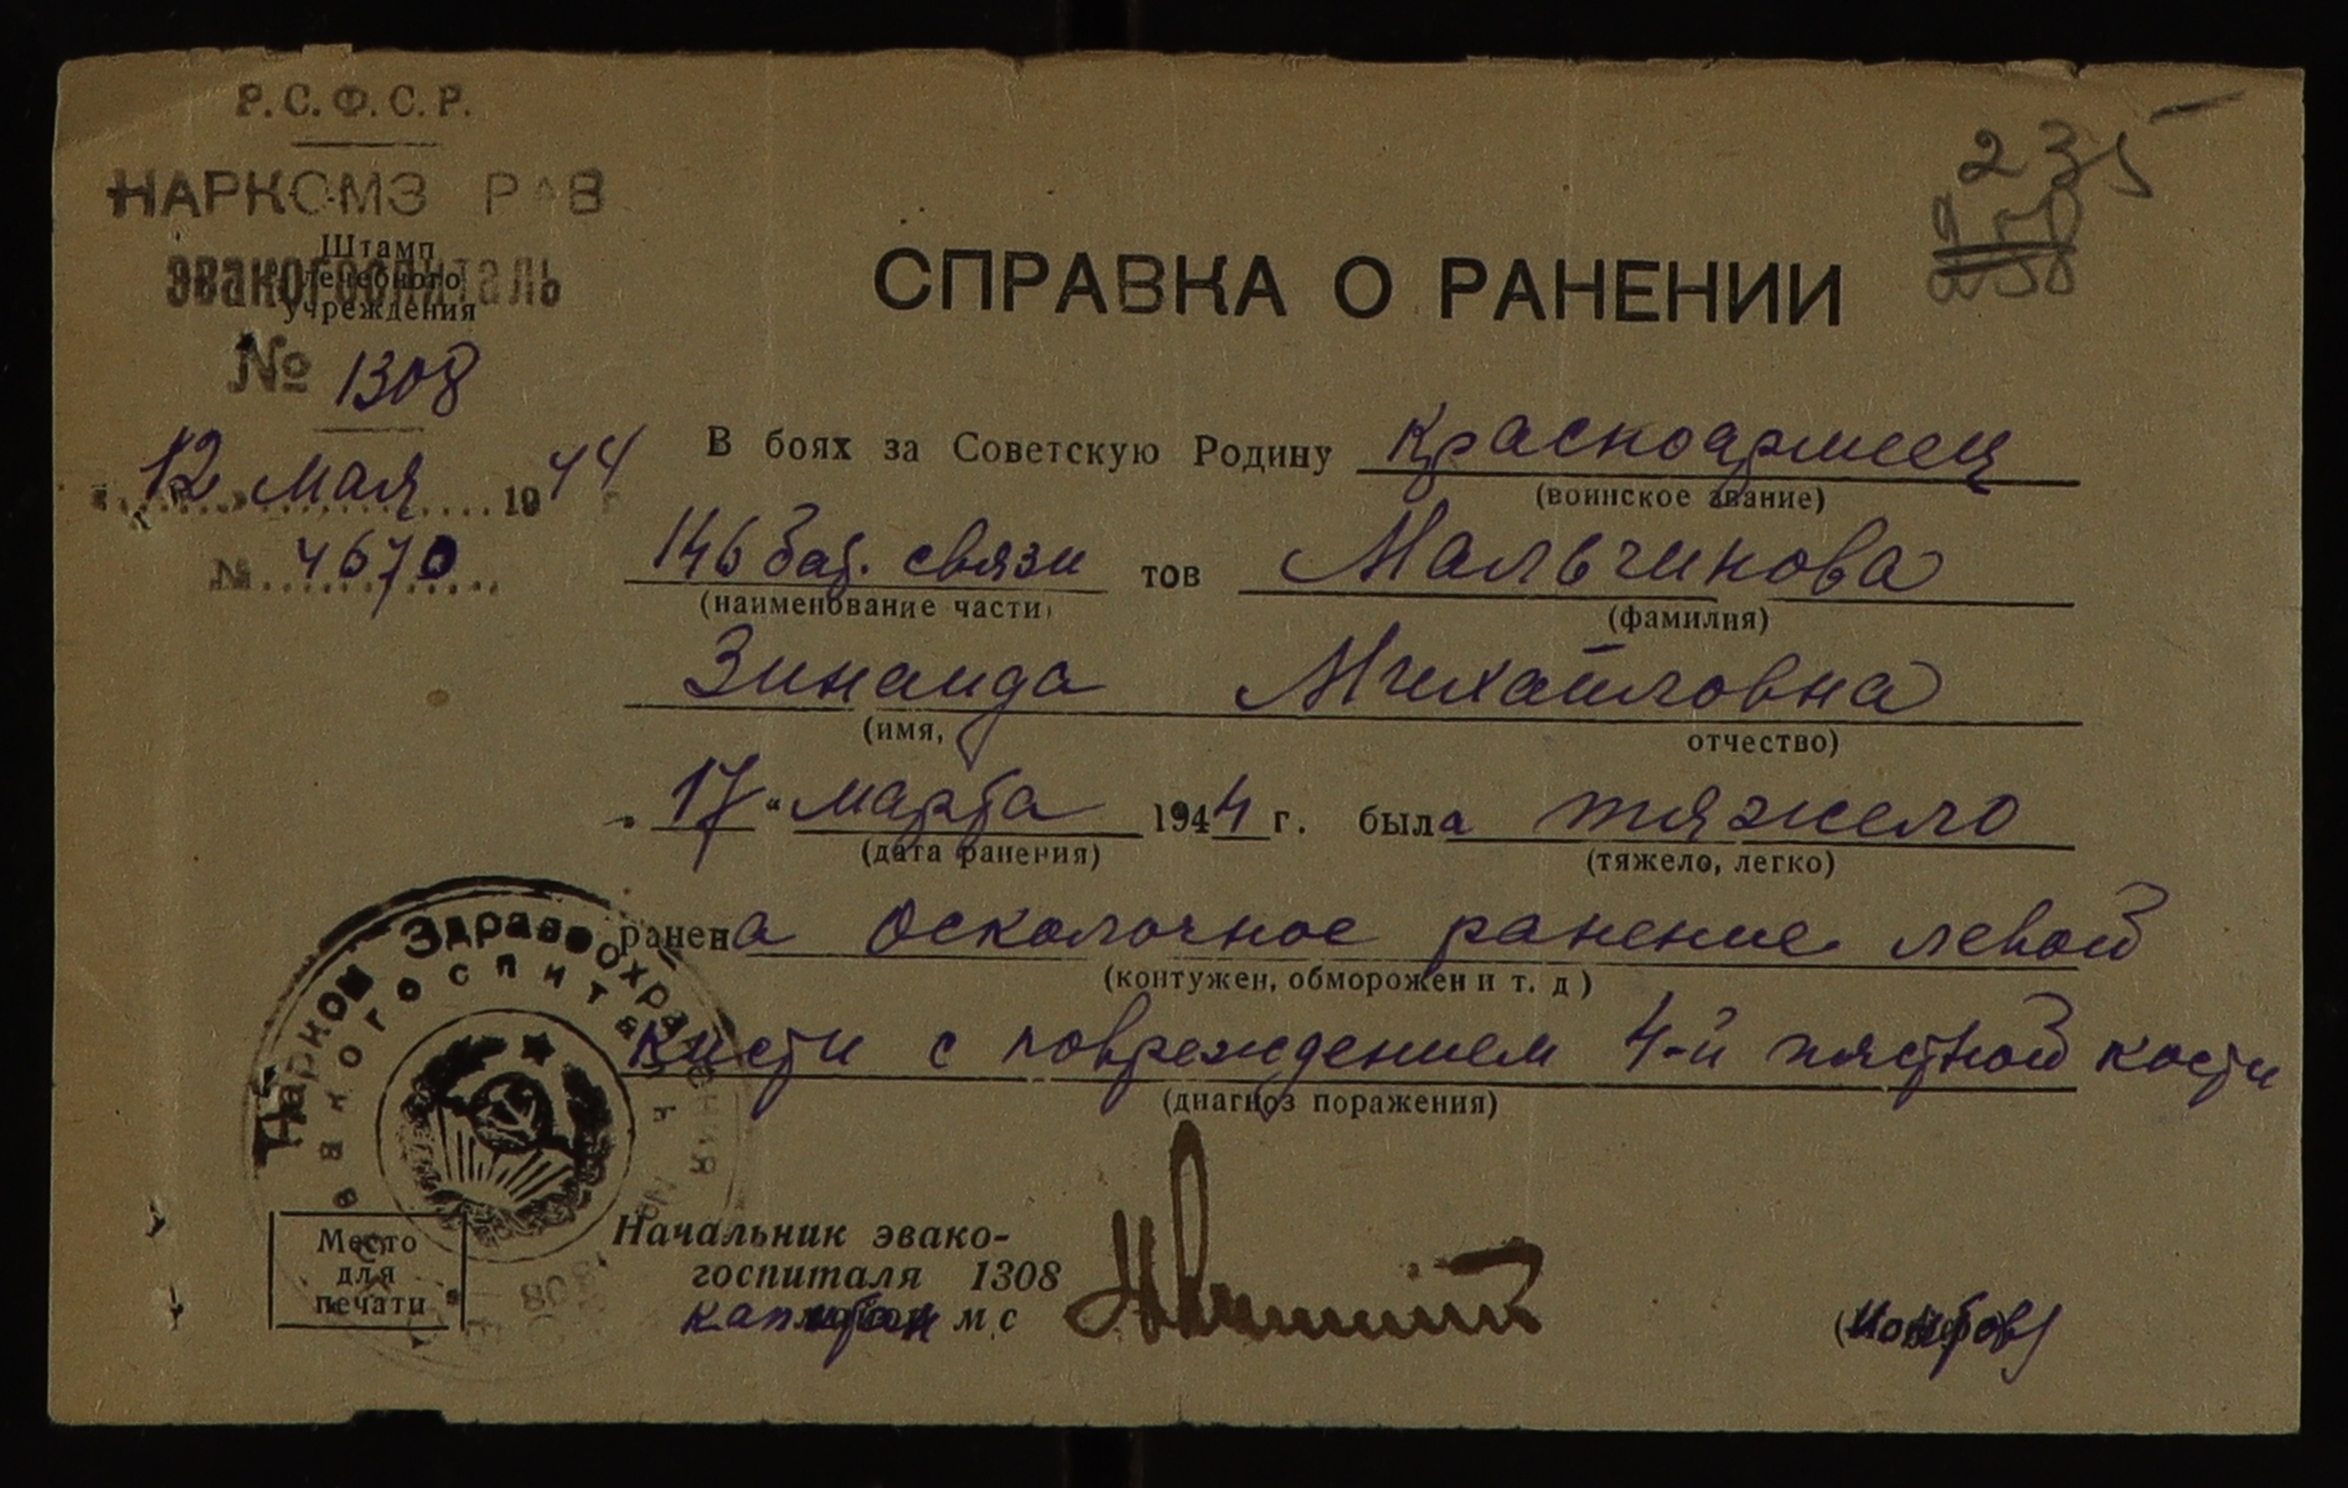 Р.С.Ф.С.Р.
НАРКОМЗ РАВ
Штамп
лечебного
учреждения
эвакогоспиталь
№ 1308
12 мая 1944 г
№ 4670
235
СПРАВКА О РАНЕНИИ
В боях за Советскую Родину красноармеец
(воинское звание)
146 бат. связи тов Мальчикова
(наименование части) (фамилия)
Зинаида Михайловна
(имя, отчество)
" 17 " марта 1944 г. была тяжело
(дата ранения) (тяжело, легко)
ранена осколочное ранение левой
(контужен, обморожен и т. д)
кисти с повреждением 4-й пястной кости
(диагноз поражения)
Нарком Здравоохранения
эвакогоспиталь
1308
Место
для
печати
Начальник эвако-
госпиталя 1308
капитан м с